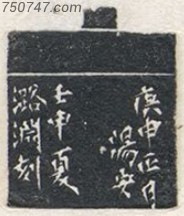 750747.com
庚申正月
湯安
壬申夏
潞淵刻